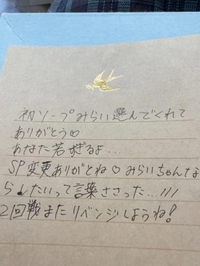 初ソープみらい選んでくれて
ありがとう♡
あなた若すぎるよ...
SP変更ありがとね♡みらいちゃんな
らしたいって言葉ささった...!!!
2回戦またリベンジしようね!